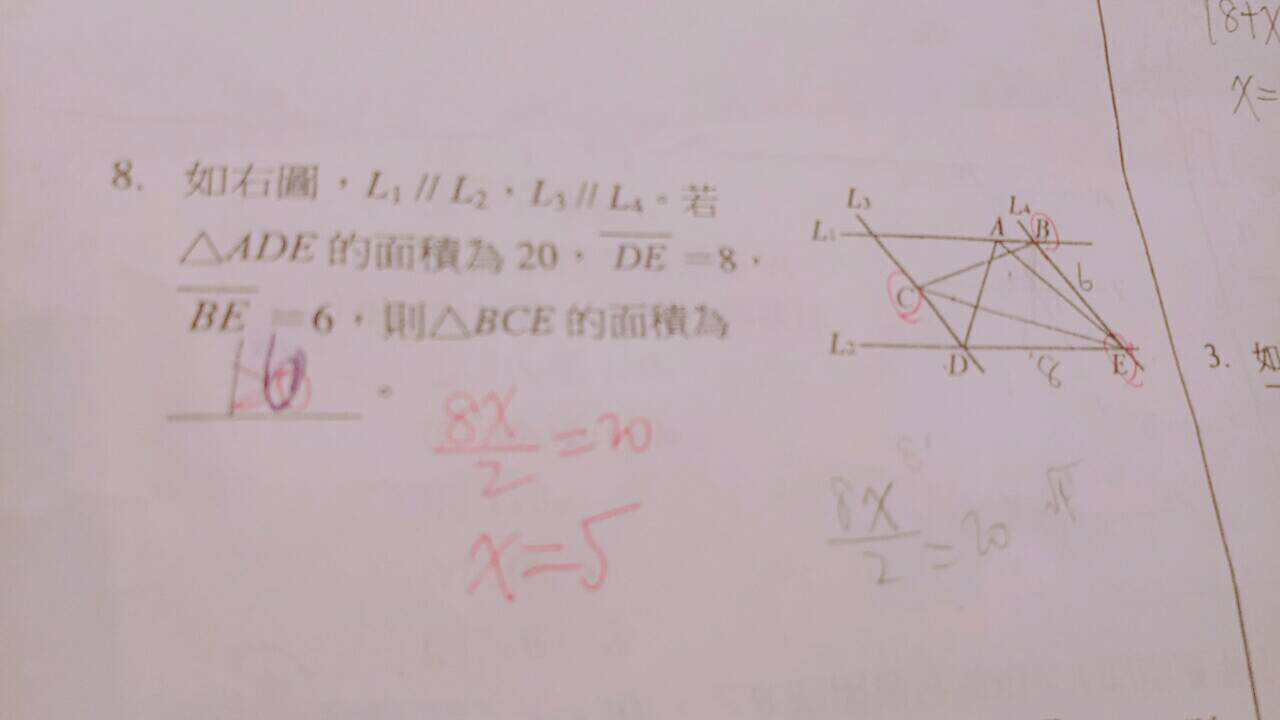 8. 如右圖，L₁ // L₂，L₃ // L₄。若
△ADE 的面積為 20， DE =8，
BE =6，則△BCE 的面積為
。
8x/2 =20
x=5
L₃
L₄
L₁
A
B
6
C
L₂
D
8
E
8x/2 =20
8+x
x=
3. 如